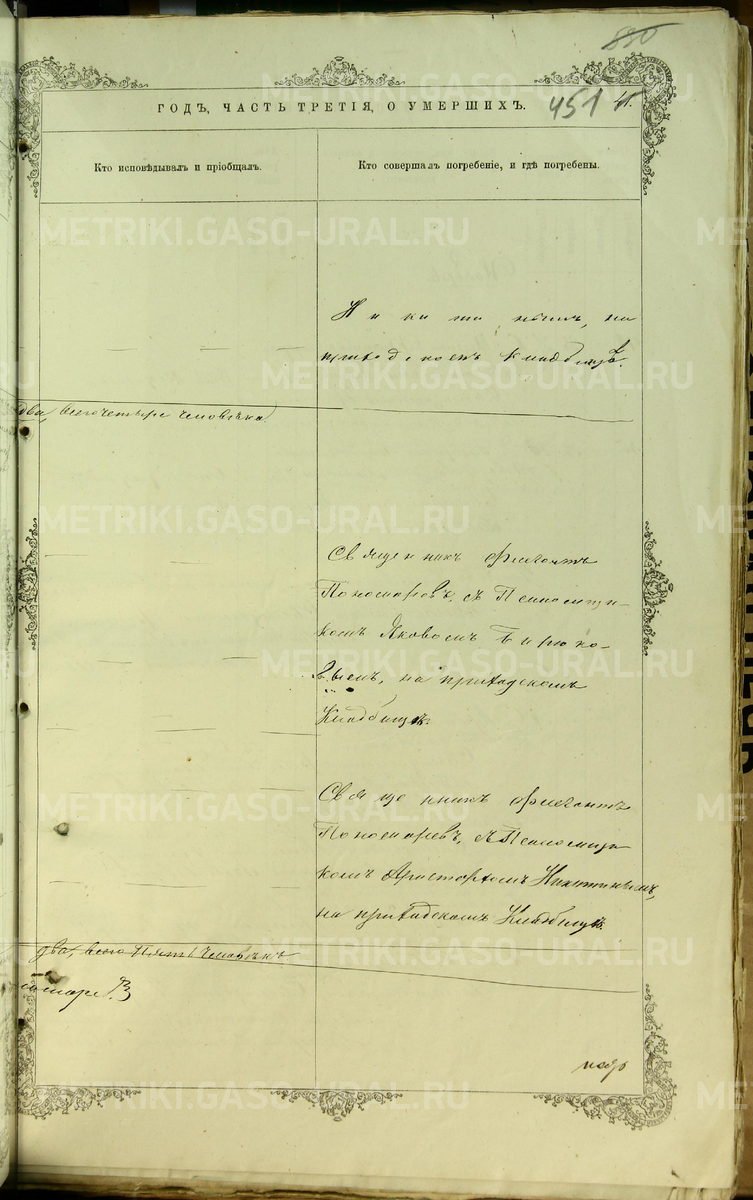 850
ГОДЪ, ЧАСТЬ ТРЕТІЯ, О УМЕРШИХЪ.
451
41.
Кто исповѣдывалъ и пріобщалъ.
Кто совершалъ погребеніе, и гдѣ погребены.
Никитинымъ, на
приходскомъ кладбищѣ.
два, всего четыре человѣка
Священникъ Флегонтъ
Пономаревъ, съ Псаломщи-
комъ Яковомъ Бирюко-
вымъ, на приходскомъ
Кладбищѣ.
Священникъ Флегонтъ
Пономаревъ, съ Псаломщи
комъ Аристархомъ Никитинымъ,
на приходскомъ Кладбищѣ.
два, всего пять человѣкъ
METRIKI.GASO-URAL.RU